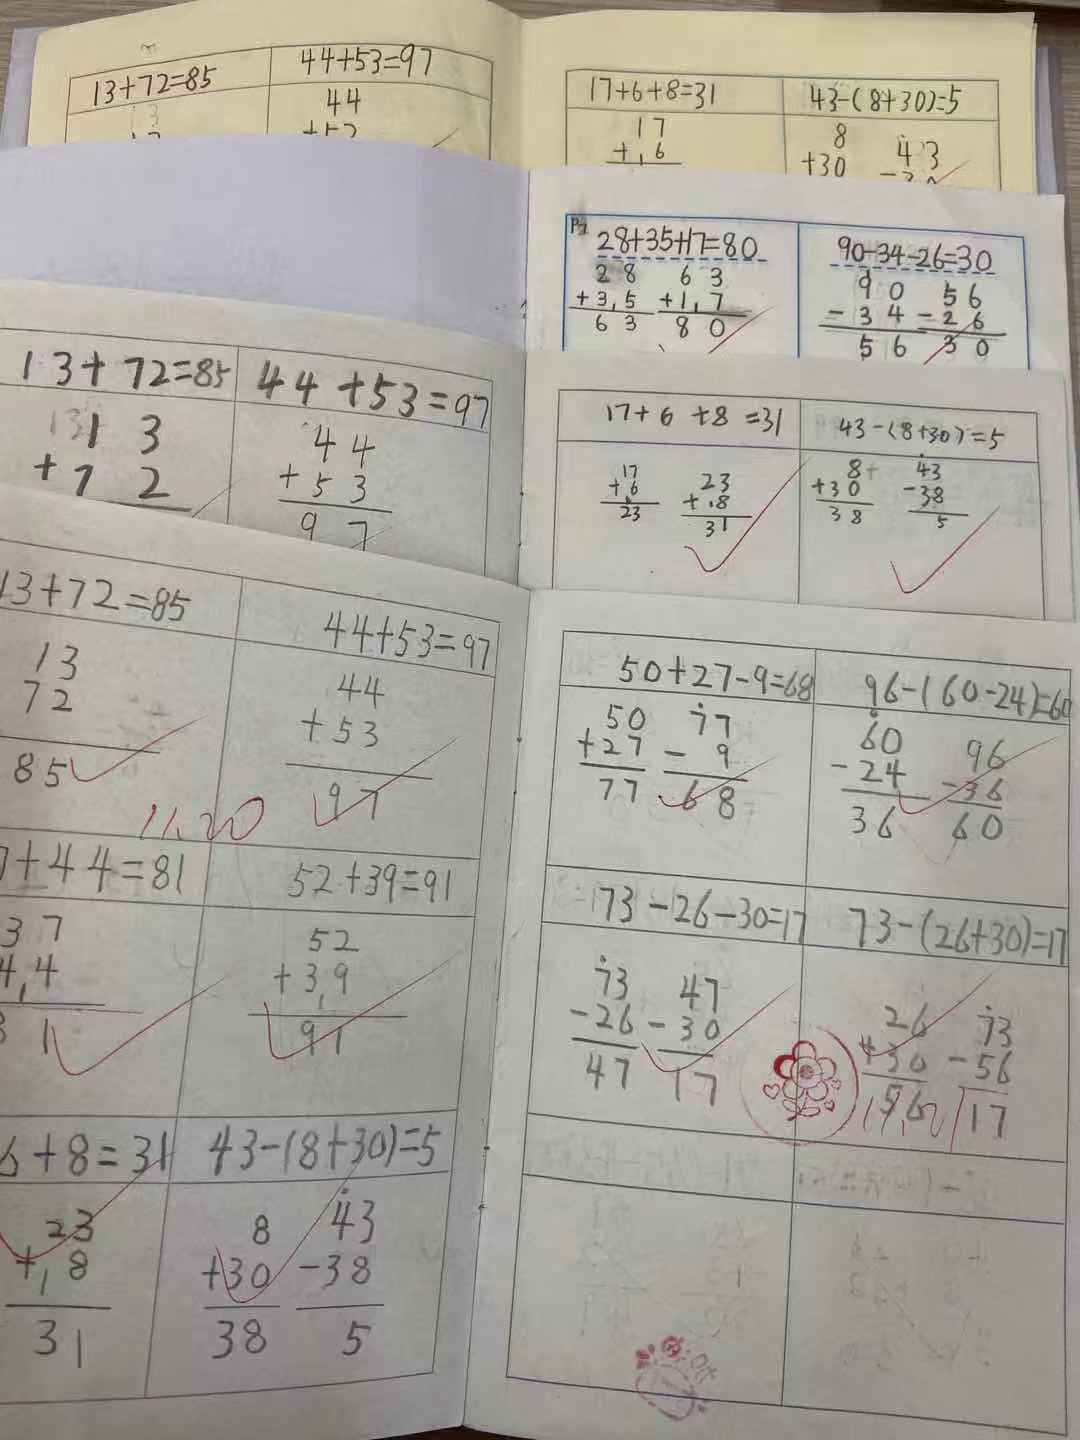 13+72=85
44+53=97
13
44
+53
17+6+8=31
43-(8+30)=5
17
+ 6
8
+30
43
P1
28+35+17=80
90-34-26=30
28 63
+35 +17
63 80
90 56
-34 -26
56 30
13+72=85
44+53=97
13
+72
44
+53
97
17+6+8=31
43-(8+30)=5
17 23
+6 +8
23 31
8 43
+30 -38
38 5
13+72=85
44+53=97
13
72
85
44
+53
97
11.20
+44=81
52+39=91
37
44
1
52
+39
91
6+8=31
43-(8+30)=5
23
+ 8
31
8 43
+30 -38
38 5
50+27-9=68
96-(60-24)=60
50 77
+27 - 9
77 68
60 96
-24 -36
36 60
73-26-30=17
73-(26+30)=17
73 47
-26 -30
47 17
26 73
+30 -56
56 17